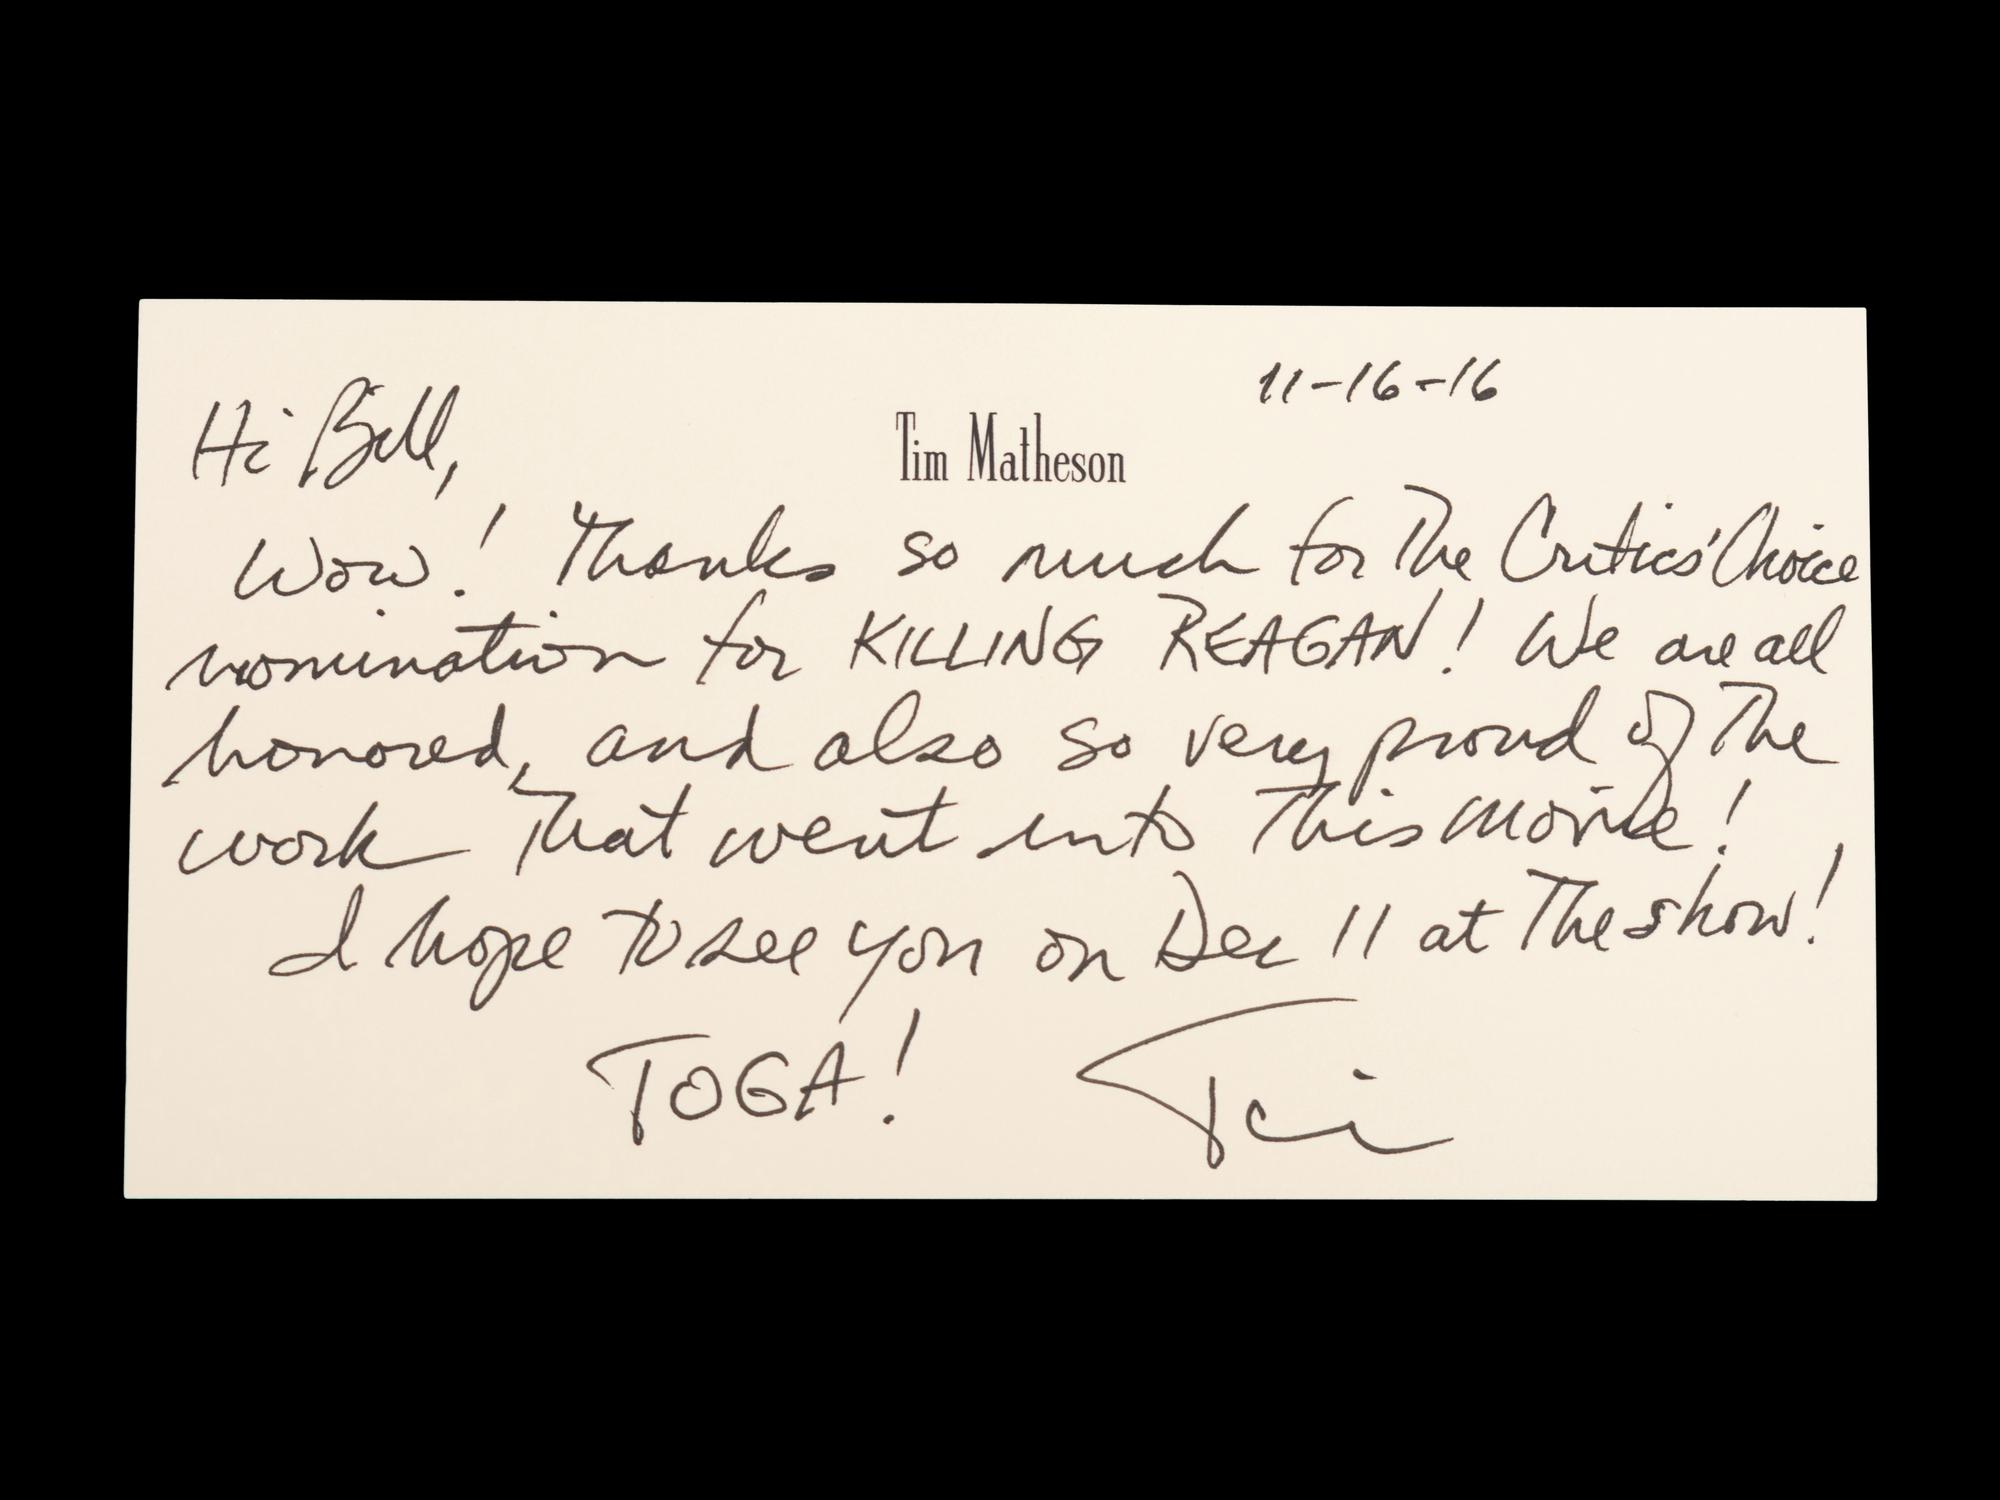 11-16-16
Tim Matheson
Hi Bill,
Wow! Thanks so much for The Critics' Choice
nomination for KILLING REAGAN! We are all
honored, and also so very proud of The
work That went into This movie!
I hope to see you on Dec 11 at The show!
TOGA! Tim